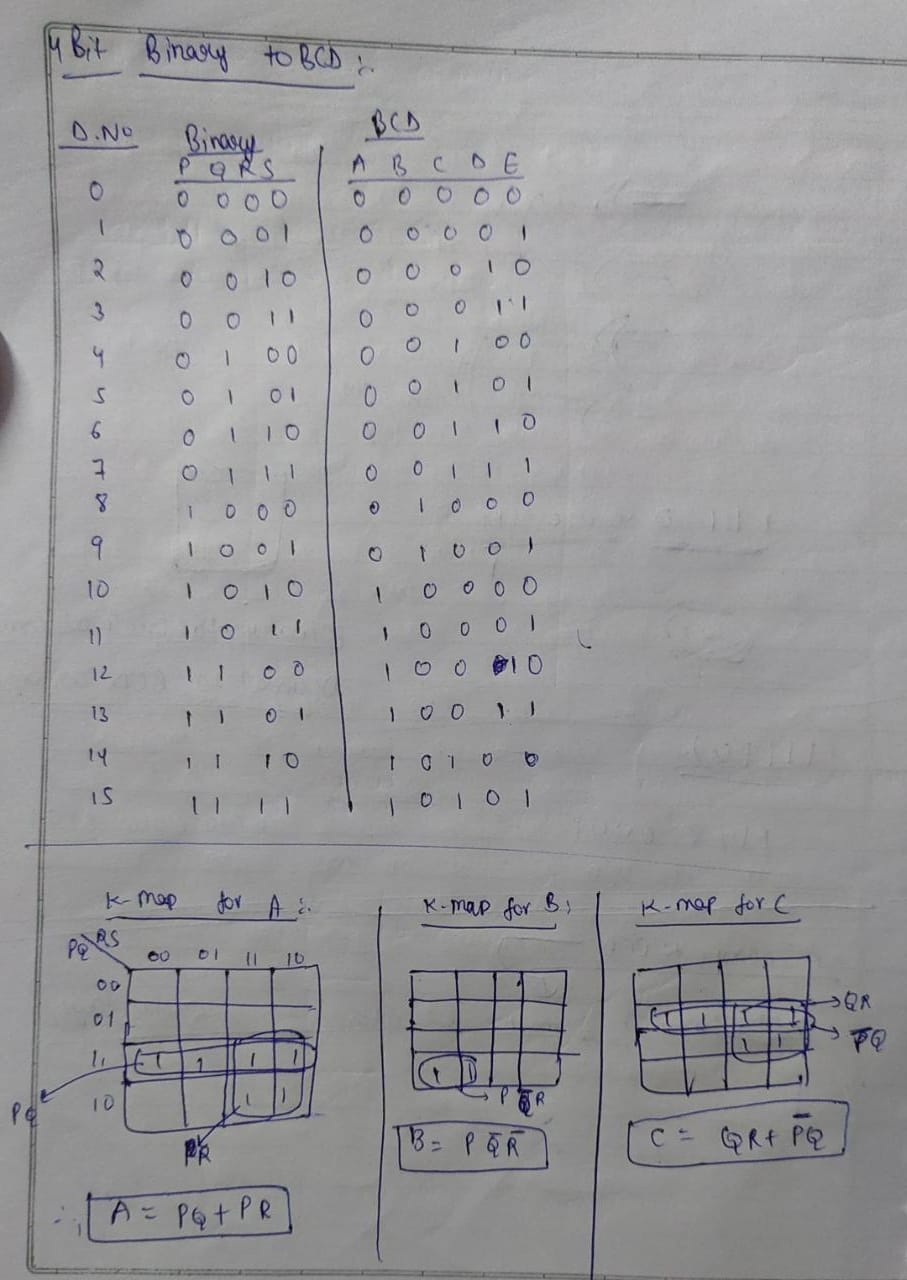 4 Bit Binary to BCD :-
D.No Binary BCD
P Q R S A B C D E
0 0 0 0 0 0 0 0 0 0
1 0 0 0 1 0 0 0 0 1
2 0 0 1 0 0 0 0 1 0
3 0 0 1 1 0 0 0 1 1
4 0 1 0 0 0 0 1 0 0
5 0 1 0 1 0 0 1 0 1
6 0 1 1 0 0 0 1 1 0
7 0 1 1 1 0 0 1 1 1
8 1 0 0 0 0 1 0 0 0
9 1 0 0 1 0 1 0 0 1
10 1 0 1 0 1 0 0 0 0
11 1 0 1 1 1 0 0 0 1
12 1 1 0 0 1 0 0 1 0
13 1 1 0 1 1 0 0 1 1
14 1 1 1 0 1 0 1 0 0
15 1 1 1 1 1 0 1 0 1
K-map for A :-
PQ RS
00 01 11 10
00
01
11 1 1 1 1
10 1 1
PQ
PR
∴, A = PQ + PR
K-map for B :
1 1
P Q̄ R̄
B = P Q̄ R̄
K-map for C
1 1 1 1 → QR
1 1 → P̄Q
C = QR + P̄Q